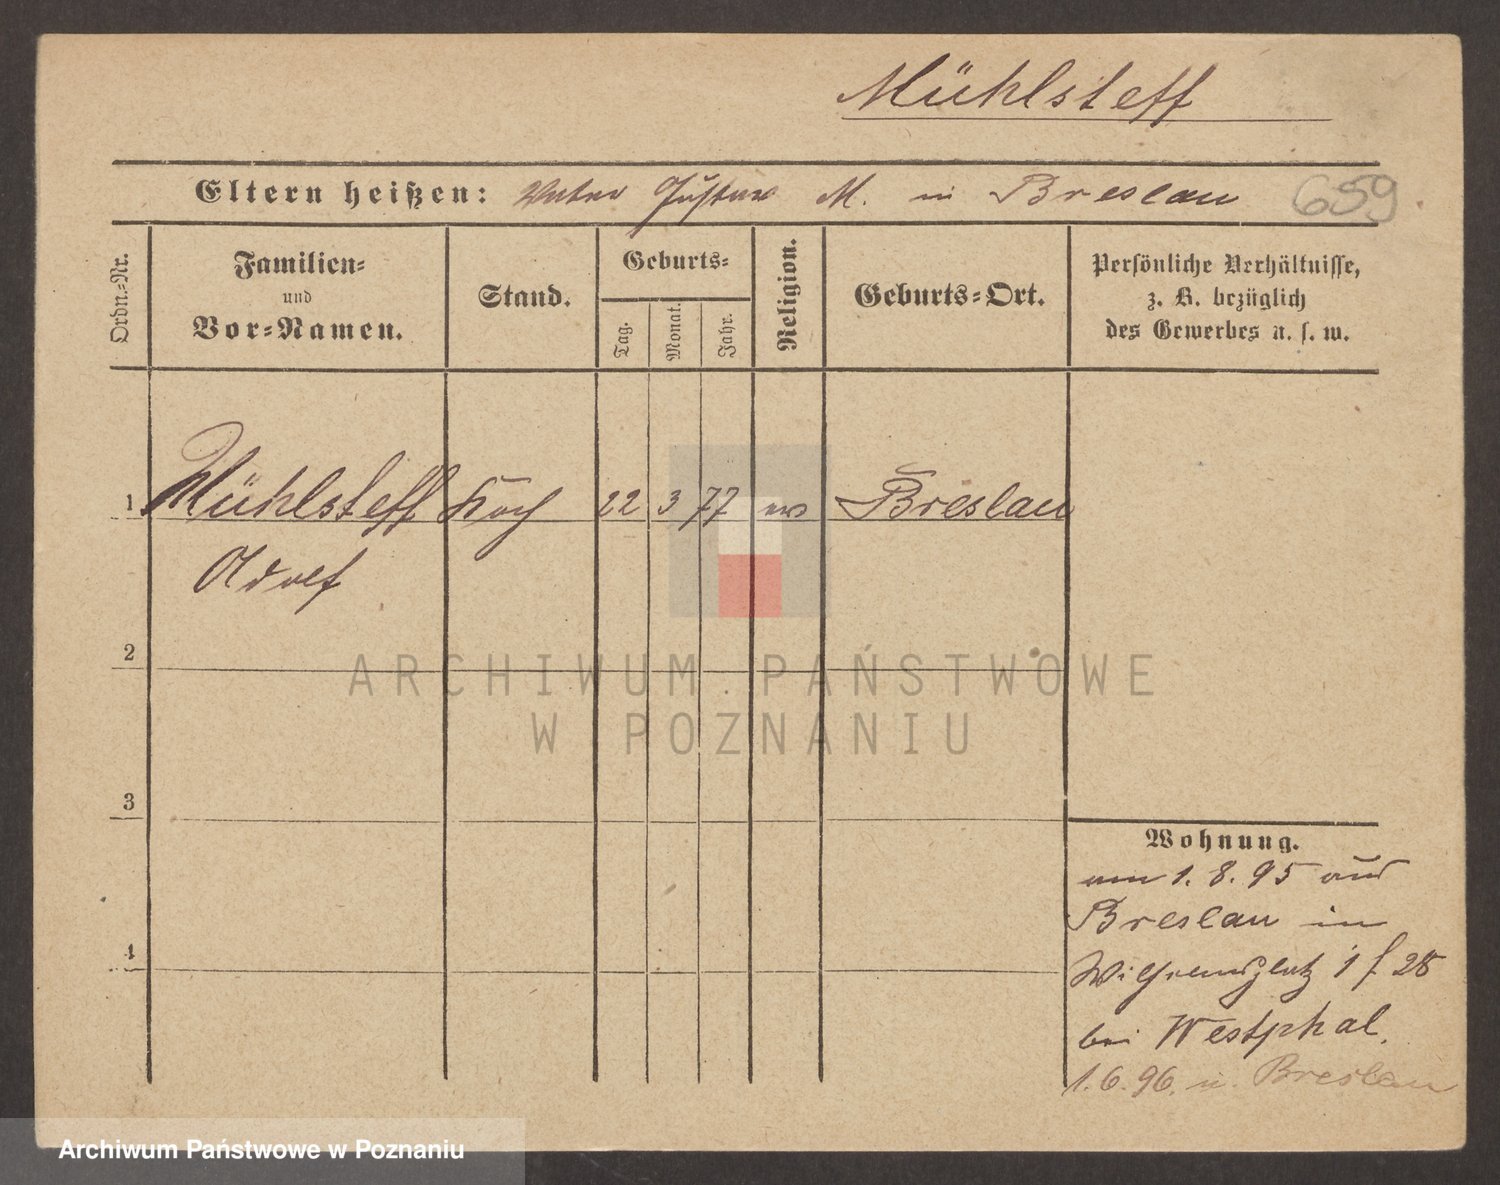 Mühlsteff
Eltern heißen: Vater Gustav M. in Breslau 659
Ordn.=Nr.
Familien=
und
Vor=Namen.
Stand.
Geburts=
Tag.
Monat.
Jahr.
Religion.
Geburts=Ort.
Persönliche Verhältnisse,
z. B. bezüglich
des Gewerbes u. s. w.
1 Mühlsteff Koch 22 3 77 ev Breslau
Adolf
2
3
4
ARCHIWUM PAŃSTWOWE
W POZNANIU
Wohnung.
am 1. 8. 95 aus
Breslau in
Wilhelmsplatz 1
bei Westphal.
1. 6. 96. n. Breslau
Archiwum Państwowe w Poznaniu